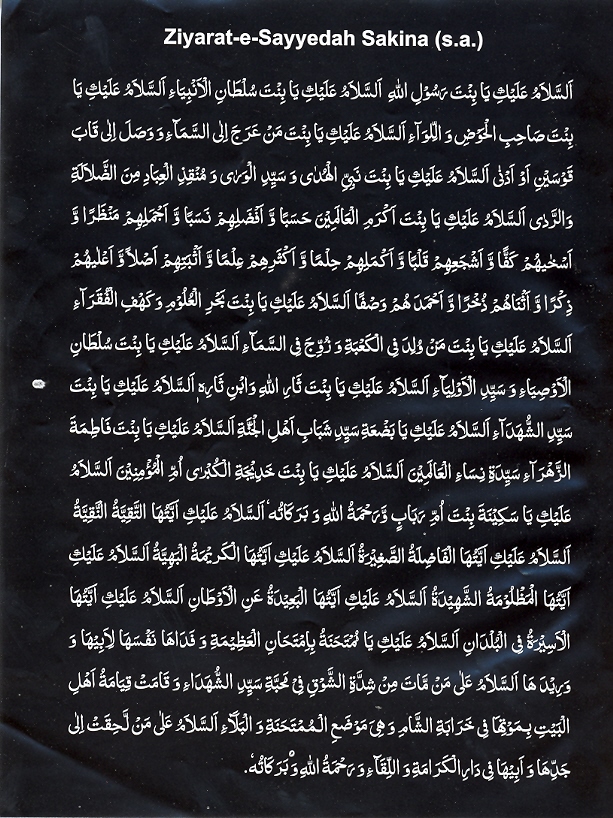 Ziyarat-e-Sayyedah Sakina (s.a.)
اَلسَّلَامُ عَلَيْكِ يَا بِنْتَ رَسُوْلِ اللهِ اَلسَّلَامُ عَلَيْكِ يَا بِنْتَ سُلْطَانِ الْاَنْبِيَاءِ اَلسَّلَامُ عَلَيْكِ يَا
بِنْتَ صَاحِبِ الْحَوْضِ وَ اللِّوَآءِ اَلسَّلَامُ عَلَيْكِ يَا بِنْتَ مَنْ عَرَجَ اِلَى السَّمَآءِ وَ وَصَلَ اِلٰى قَابَ
قَوْسَيْنِ اَوْ اَدْنٰى اَلسَّلَامُ عَلَيْكِ يَا بِنْتَ نَبِيِّ الْهُدٰى وَ سَيِّدِ الْوَرٰى وَ مُنْقِذِ الْعِبَادِ مِنَ الضَّلَالَةِ
وَالرَّدٰى اَلسَّلَامُ عَلَيْكِ يَا بِنْتَ اَكْرَمِ الْعَالَمِيْنَ حَسَبًا وَّ اَفْضَلِهِمْ نَسَبًا وَّ اَجْمَلِهِمْ مَنْظَرًا وَّ
اَسْخٰيهُمْ كَفًّا وَّ اَشْجَعِهِمْ قَلْبًا وَّ اَكْمَلِهِمْ حِلْمًا وَّ اَكْثَرِهِمْ عِلْمًا وَّ اَثْبَتِهِمْ اَصْلاً وَّ اَعْلٰيهُمْ
ذِكْرًا وَّ اَثْنَاهُمْ ذُخْرًا وَّ اَحْمَدَ هُمْ وَصْفًا اَلسَّلَامُ عَلَيْكِ يَا بِنْتَ بَحْرِ الْعُلُوْمِ وَ كَهْفِ الْفُقَرَآءِ
اَلسَّلَامُ عَلَيْكِ يَا بِنْتَ مَنْ وُلِدَ فِى الْكَعْبَةِ وَ زُوِّجَ فِى السَّمَآءِ اَلسَّلَامُ عَلَيْكِ يَا بِنْتَ سُلْطَانِ
الْاَوْصِيَاءِ وَ سَيِّدِ الْاَوْلِيَآءِ اَلسَّلَامُ عَلَيْكِ يَا بِنْتَ ثَارِ اللهِ وَابْنِ ثَارِهٖ اَلسَّلَامُ عَلَيْكِ يَا بِنْتَ
سَيِّدِ الشُّهَدَآءِ اَلسَّلَامُ عَلَيْكِ يَا بَضْعَةِ سَيِّدِ شَبَابِ اَهْلِ الْجَنَّةِ اَلسَّلَامُ عَلَيْكِ يَا بِنْتَ فَاطِمَةَ
الزَّهْرَآءِ سَيِّدَةِ نِسَاءِ الْعَالَمِيْنَ اَلسَّلَامُ عَلَيْكِ يَا بِنْتَ خَدِيْجَةِ الْكُبْرٰى اُمِّ الْمُؤْمِنِيْنَ اَلسَّلَامُ
عَلَيْكِ يَا سَكِيْنَةَ بِنْتَ اُمِّ رَبَابٍ وَّرَحْمَةُ اللهِ وَ بَرَكَاتُهٗ اَلسَّلَامُ عَلَيْكِ اَيَّتُهَا التَّقِيَّةُ النَّقِيَّةُ
اَلسَّلَامُ عَلَيْكِ اَيَّتُهَا الْفَاضِلَةُ الصَّغِيْرَةُ اَلسَّلَامُ عَلَيْكِ اَيَّتُهَا الْكَرِيْمَةُ الْبَهِيَّةُ اَلسَّلَامُ عَلَيْكِ
اَيَّتُهَا الْمَظْلُوْمَةُ الشَّهِيْدَةُ اَلسَّلَامُ عَلَيْكِ اَيَّتُهَا الْبَعِيْدَةُ عَنِ الْاَوْطَانِ اَلسَّلَامُ عَلَيْكِ اَيَّتُهَا
الْاَسِيْرَةُ فِى الْبُلْدَانِ اَلسَّلَامُ عَلَيْكِ يَا مُمْتَحَنَةُ بِامْتَحَانِ الْعَظِيْمَةِ وَ فَدَاهَا نَفْسَهَا لِاَبِيْهَا وَ
وَرِيْدَ هَا اَلسَّلَامُ عَلٰى مَنْ مَّاتَ مِنْ شِدَّةِ الشَّوْقِ فِىْ مَحَبَّةِ سَيِّدِ الشُّهَدَاءِ وَ قَامَتْ قِيَامَةُ اَهْلِ
الْبَيْتِ بِمَوْتِهَا فِىْ خَرَابَةِ الشَّامِ وَ هِىَ مَوْضَعِ الْمُمْتَحَنَةِ وَ الْبَلَآءِ اَلسَّلَامُ عَلٰى مَنْ لَّحِقَتْ اِلٰى
جَدِّهَا وَ اَبِيْهَا فِىْ دَارِ الْكَرَامَةِ وَ اللِّقَآءِ وَ رَحْمَةُ اللهِ وَ بَرَكَاتُهٗ.